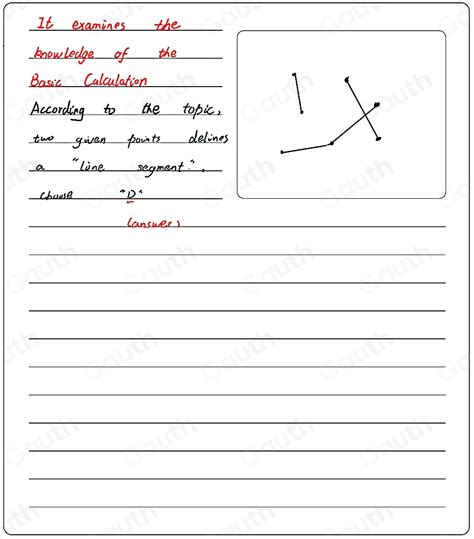 It examines the
knowledge of the
Basic Calculation
According to the topic,
two given points delines
a "line segment.",
choose "D"
(answer)
Gauth